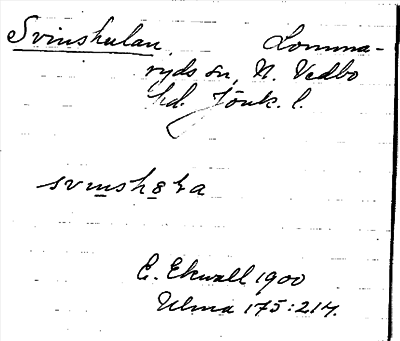 Svinskulan, Lomma-
ryds sn, N. Vedbo
hd. Jönk. l.
E. Ekwall 1900
Ulma 175:214.